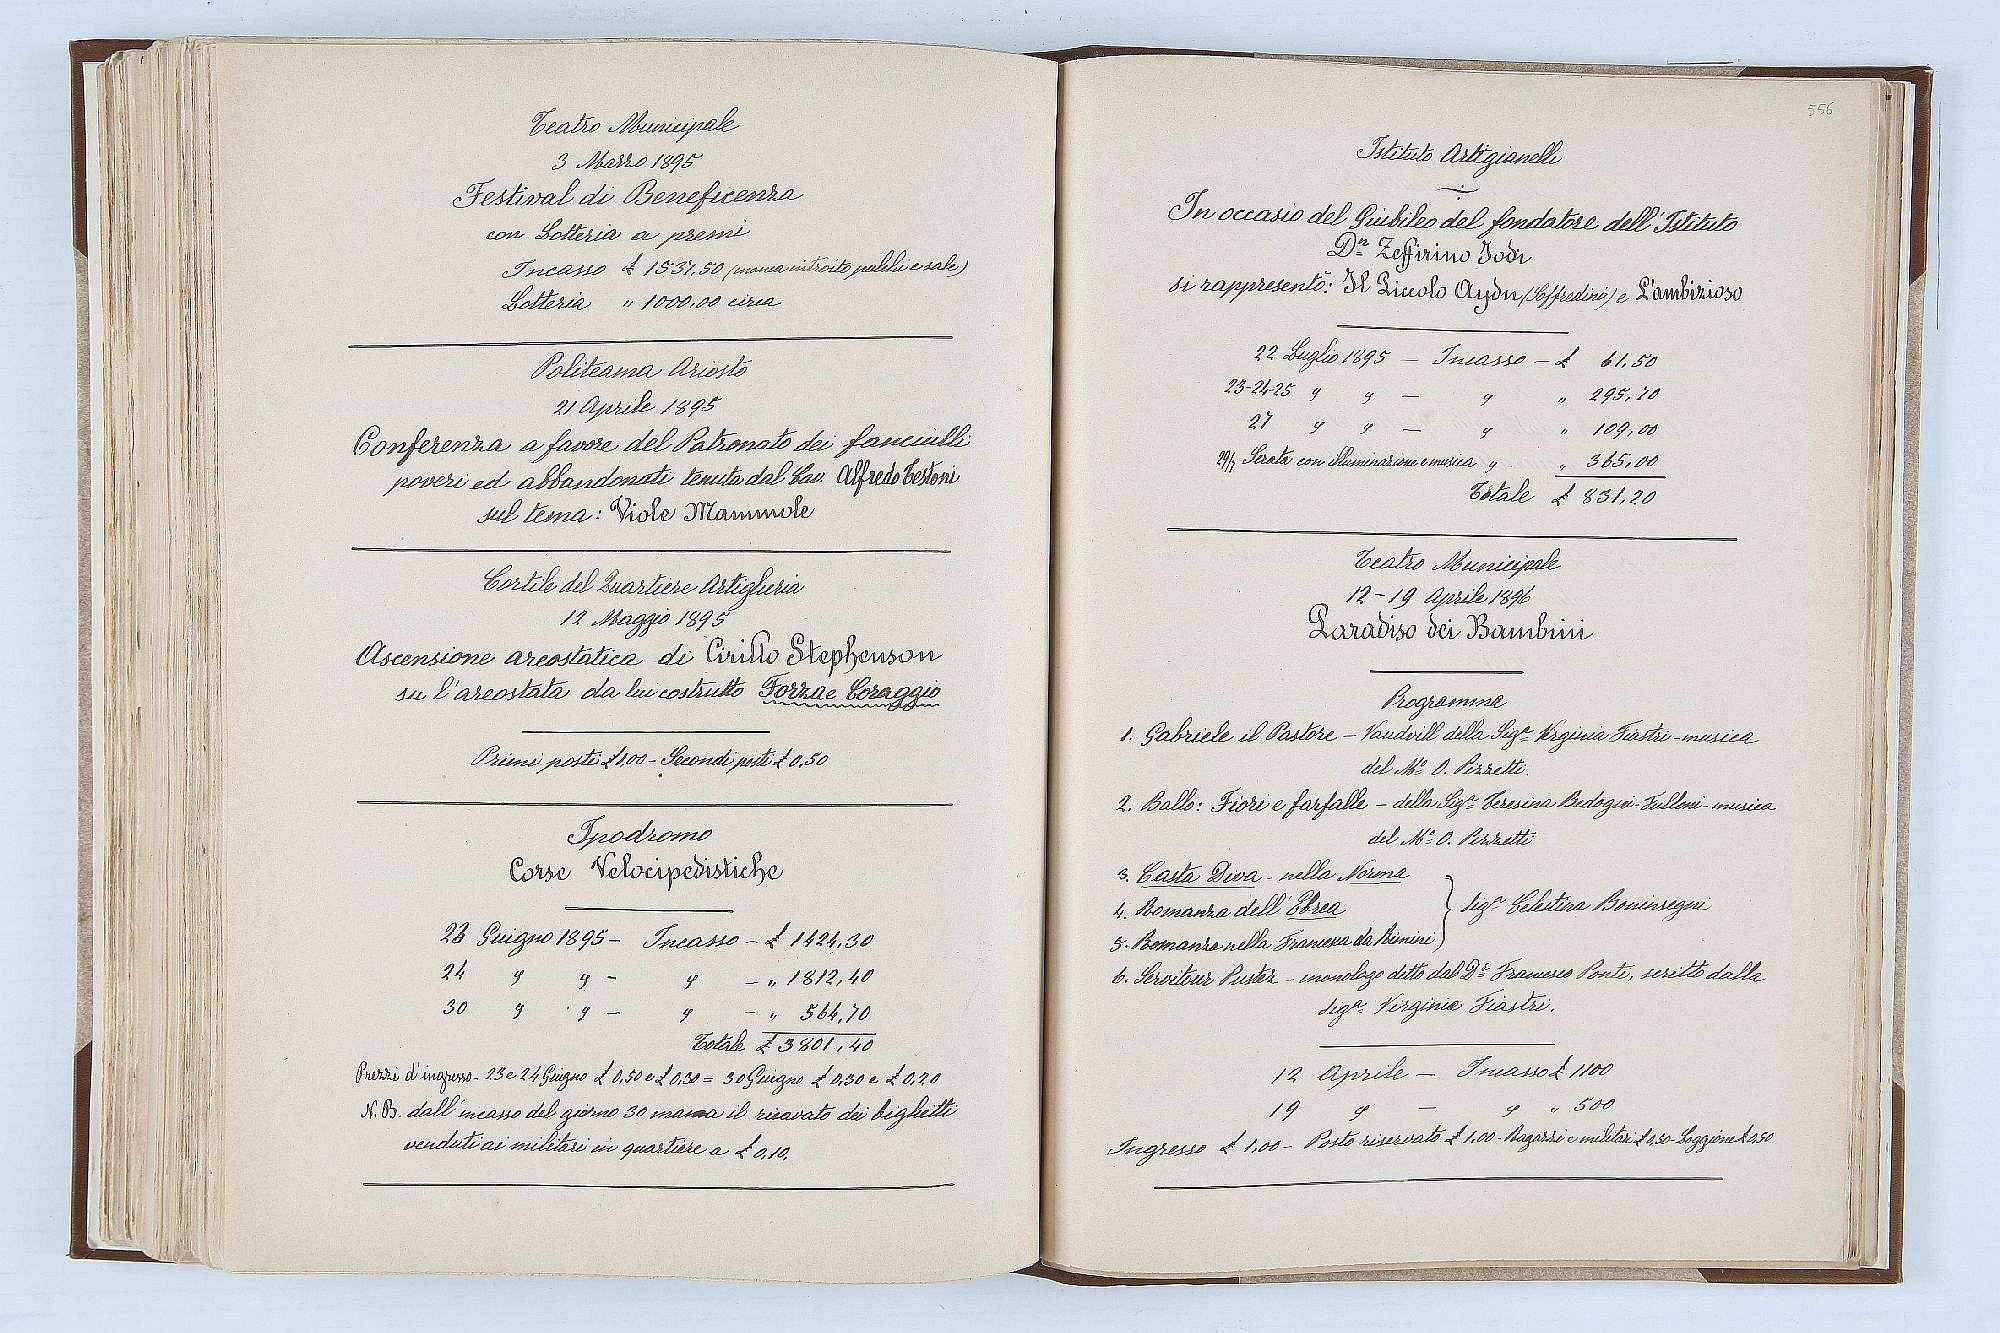 Teatro Municipale
3 Marzo 1895
Festival di Beneficenza
con Lotteria a premi
Incasso £ 1537,50 (manca introito palchi e sale)
Lotteria " 1000.00 circa
Politeama Ariosto
21 Aprile 1895
Conferenza a favore del Patronato dei fanciulli
poveri ed abbandonati tenuta dal Cav. Alfredo Testoni
sul tema: Viole Mammole
Cortile del Quartiere Artiglieria
12 Maggio 1895
Ascensione areostatica di Cirillo Stephenson
su l'areostata da lui costrutto Forza e Coraggio
Primi posti £ 1,00 - Secondi posti £ 0,50
Ipodromo
Corse Velocipedistiche
23 Guigno 1895 - Incasso - £ 1424,30
24 " " - " - " 1812,40
30 " " - " - " 564,70
Totale £ 3801,40
Prezzi d'ingresso - 23 e 24 Guigno £ 0,50 e £ 0,30 = 30 Guigno £ 0,30 e £ 0,20
N.B. dall'incasso del giorno 30 manca il ricavato dei biglietti
venduti ai militari in quartiere a £ 0,10.
556
Istituto Artigianelli
In occasio del Giubileo del fondatore dell'Istituto
Dn Zeffirino Jodi
si rappresentò: Il Piccolo Aydn (Soffredini) e L'ambizioso
22 Luglio 1895 - Incasso - £ 61,50
23-24-25 " " - " " 295,70
27 " " - " " 109,00
29/7 Serata con illuminazione e musica " " 365,00
Totale £ 831,20
Teatro Municipale
12-19 Aprile 1896
Paradiso dei Bambini
Programma
1. Gabriele il Pastore - Vaudvill della Siga Virginia Fiastri - musica
del Mo O. Pizzetti.
2. Ballo: Fiori e farfalle - della Siga Teresina Bedogni-Fulloni - musica
del Mo O. Pizzetti
3. Casta Diva - nella Norma
4. Romanza dell'Ebrea
5. Romanza nella Francesca da Rimini
Siga Celestina Boninsegni
6. Servitour Pustèz - monologo detto dal Dr Francesco Ponti, scritto dalla
siga Virginia Fiastri.
12 Aprile - Incasso £ 1100
19 " - " " 500
Ingresso £ 1,00 - Posto riservato £ 1,00 - Ragazzi e militari £ 0,50 - Loggione £ 0,50